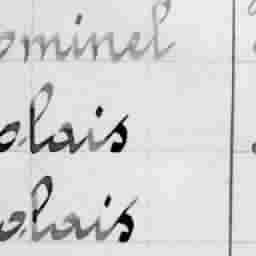 ominel
olais
olais